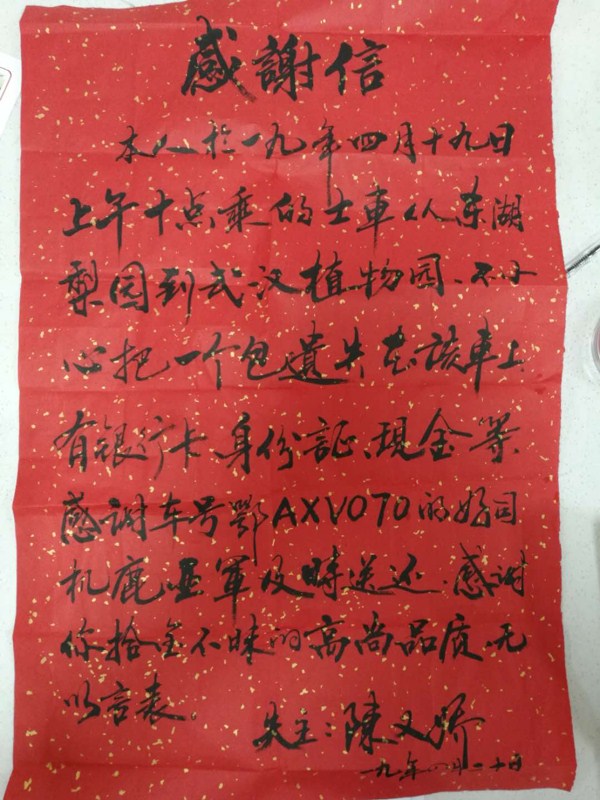 感謝信
本人於一九年四月十九日
上午十点乘的士車从东湖
梨园到武汉植物园、不小
心把一个包遺失在该車上
有银行卡、身份証、現金等、
感谢车号鄂AXV070的好司
机鹿亚軍及時送还、感谢
你拾金不昧的高尚品质、无
以言表、
失主:陳又娇
一九年四月二十日